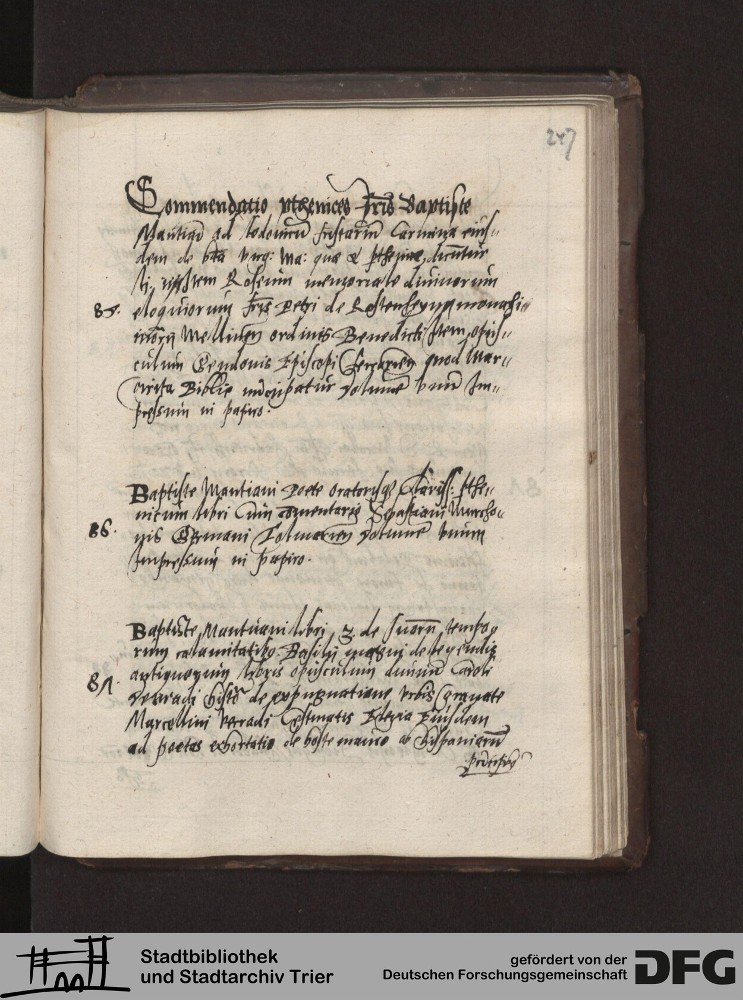 247
Commendatio pthenices Fris Baptiste
Mantuani ad lodovicum Carmina eius-
dem de bta virg: Ma: que &
Item Rosetum memoriale divinorum
85. eloquiorum fris Petri de Rosenheym monachi
Mellicen ordinis Benedicti Item opus-
culum Episcopi quod Mar-
Biblie nucupatur volume unu Im-
pressum in papiro.
Baptiste Mantuani Poete oratorisq Clariss: pthe-
nicum libri Cum comentariis Sebastiani Murrho-
86. nis Germani Colmarien volume unum
Impressum in papiro.
Baptiste Mantuani libri 3 de suoru tempo
rum calamitatibus Basilii magni de legendis
antiquorum libris opusculum divinu Caroli
87. Verardi de expugnatione urbis Granate
Marcellini Verardi Elegia Eiusdem
ad poetas exhortatio de hoste mauro ab hispaniaru
Stadtbibliothek
und Stadtarchiv Trier
gefördert von der
Deutschen Forschungsgemeinschaft
DFG